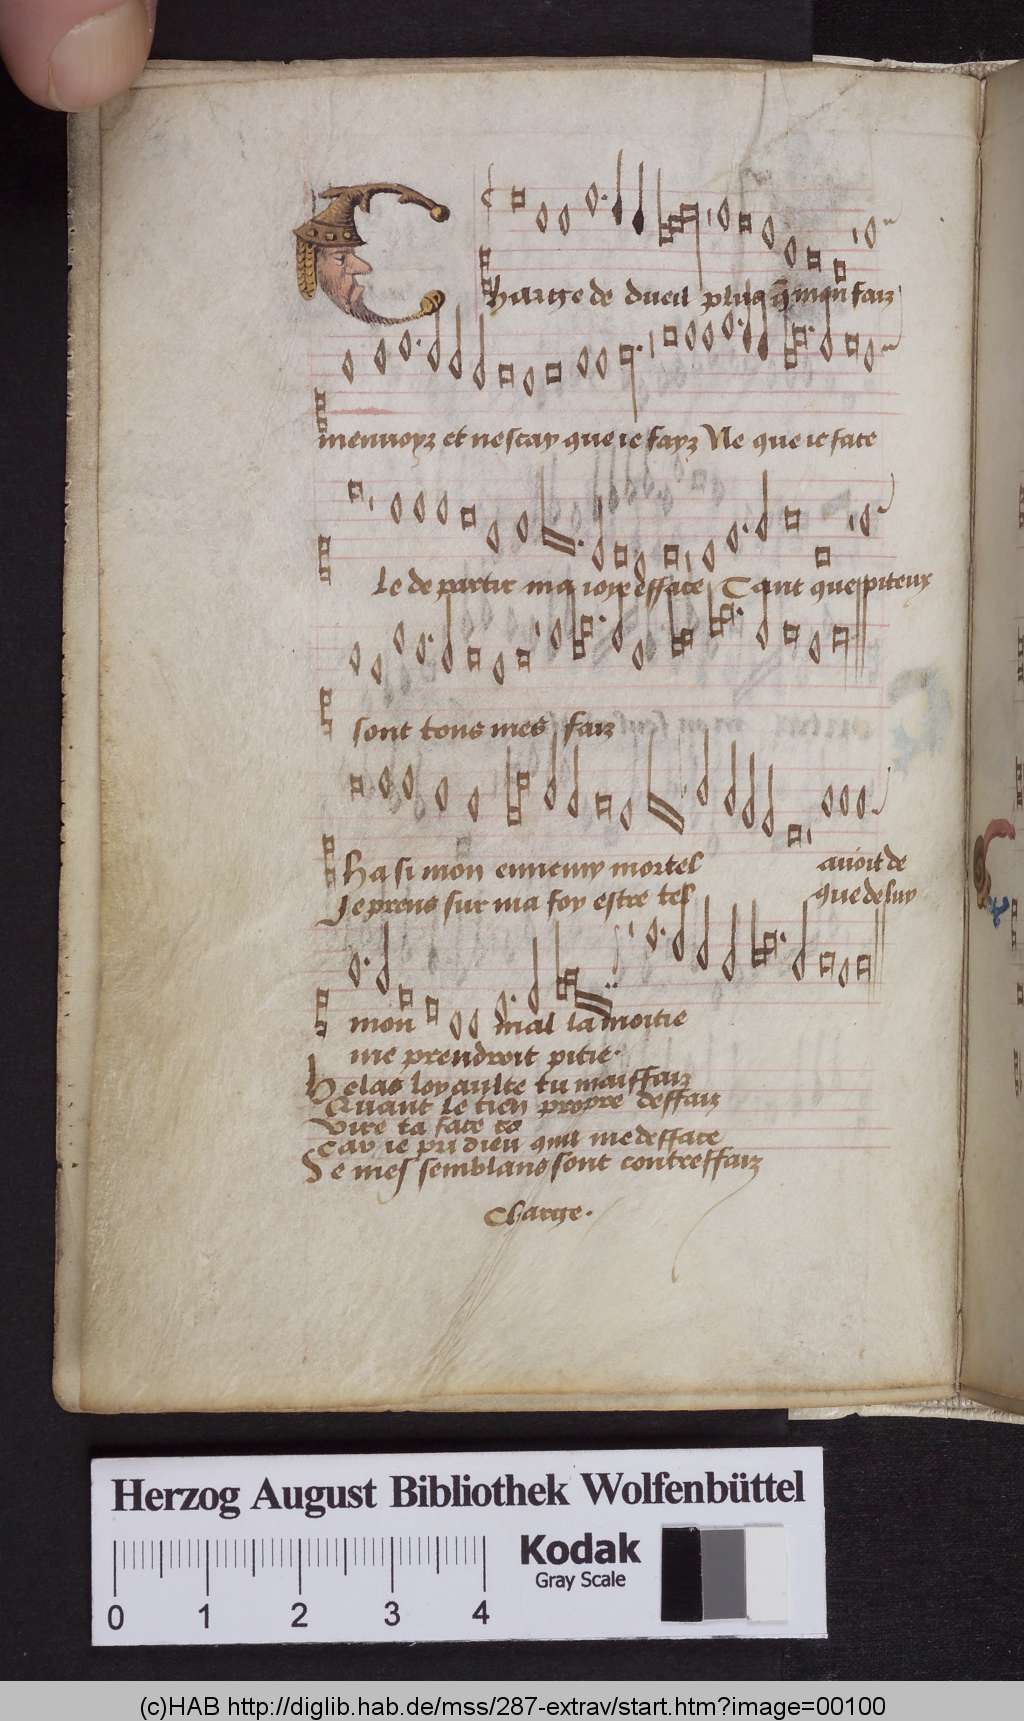 Charge de dueil plus q̃ mon faiz
menuoyz et nescay que ie fayz Ne que ie face
Le departir ma ioye efface Tant que piteux
sont tous mes faiz
Ha si mon ennemy mortel auoit de
Je prens sur ma foy estre tel que de luy
mon mal la moitie
me prendroit pitie.
Helas loyaulte tu
Quant le tien propre deffaiz
Vire ta face
Car ie pri dieu quil me defface
Se mes semblans sont contreffaiz
Charge.
Herzog August Bibliothek Wolfenbüttel
Kodak
Gray Scale
0 1 2 3 4
(c)HAB http://diglib.hab.de/mss/287-extrav/start.htm?image=00100